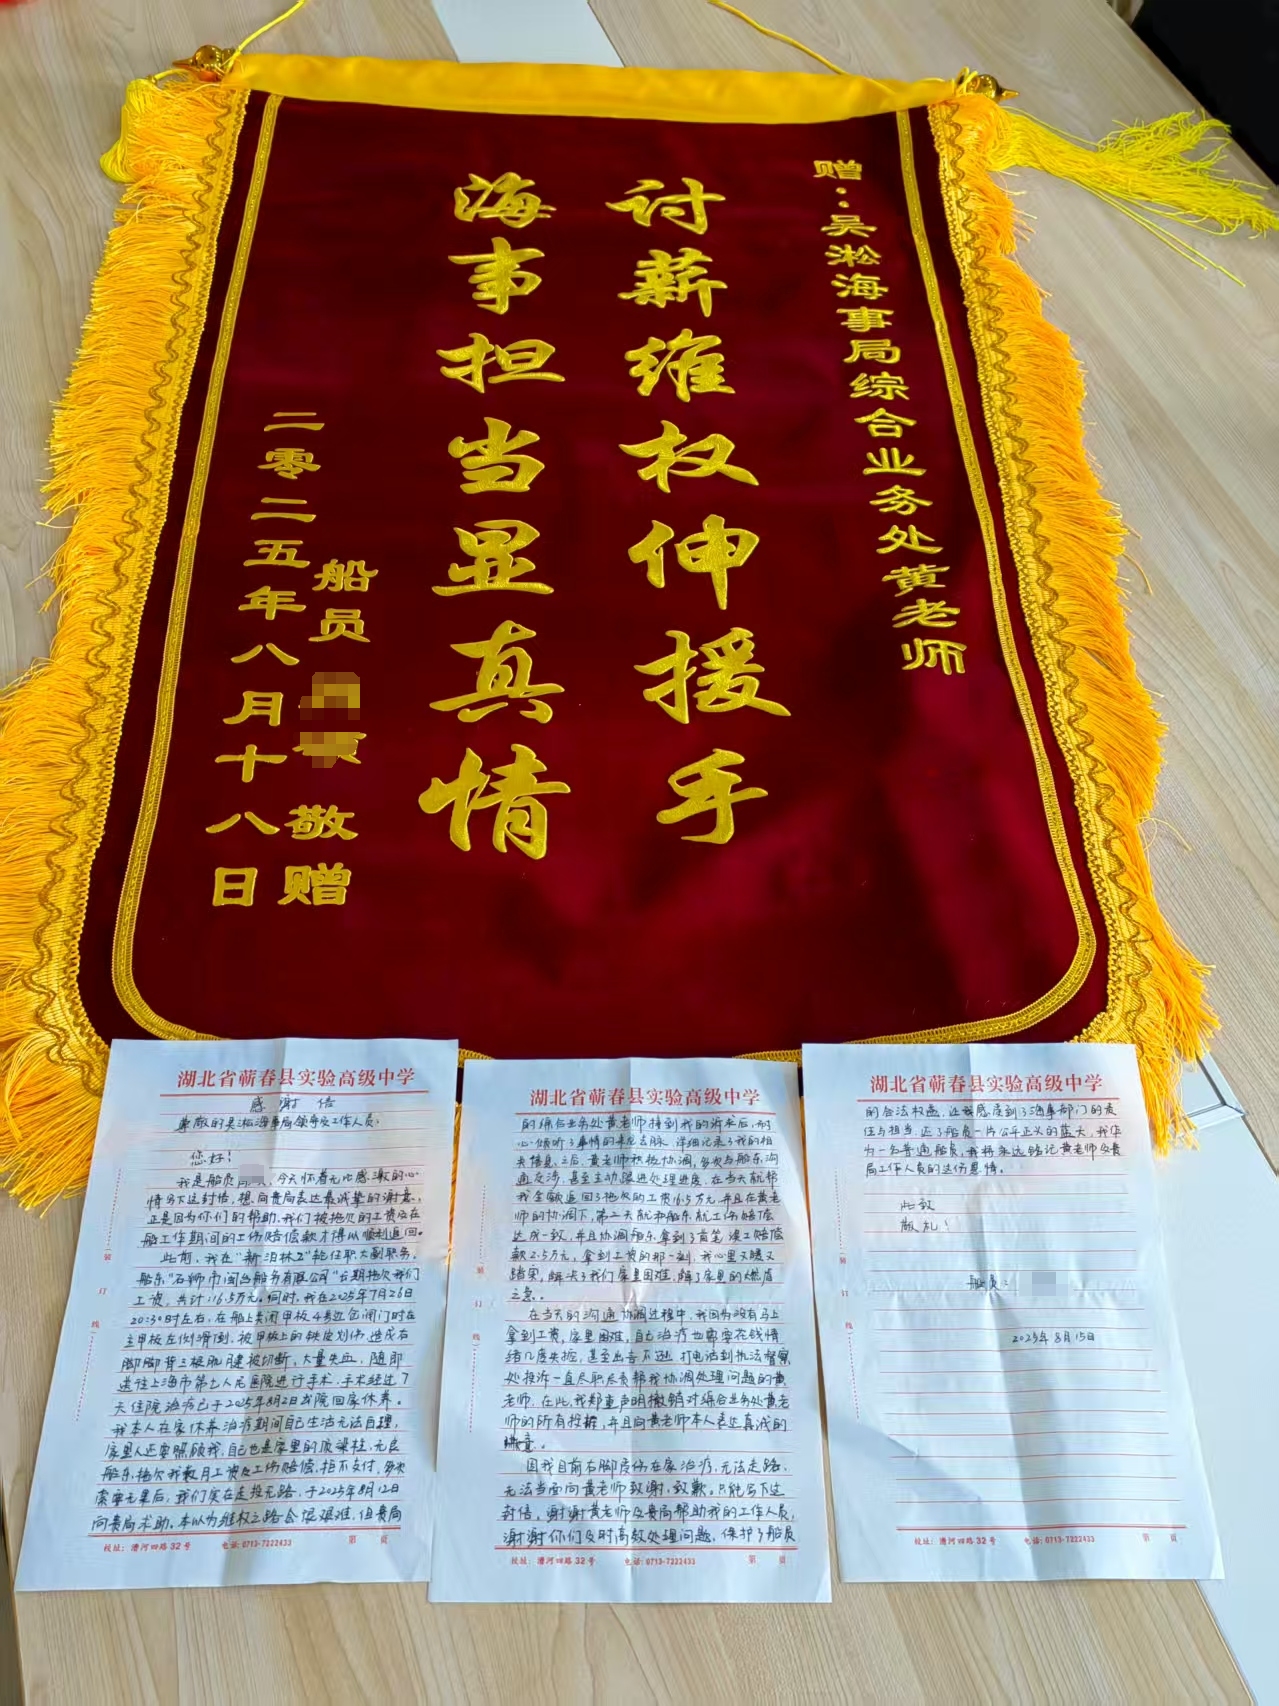 赠：吴淞海事局综合业务处黄老师
讨薪维权伸援手
海事担当显真情
船员 敬赠
二零二五年八月十八日
湖北省蕲春县实验高级中学
感谢信
尊敬的吴淞海事局领导及工作人员：
您好！
我是船员，今天怀着无比感激的心
情写下这封信，想向贵局表达最诚挚的谢意，
正是因为你们的帮助，我们被拖欠的工资及在
船工作期间的工伤赔偿款才得以顺利追回。
此前，我在“新泊林2”轮任职大副职务。
船东“石狮市闽台船务有限公司”长期拖欠我们
工资，共计：16.5万元。同时，我在2025年7月26日
20:30时左右，在船上关闭甲板4号边仓闸门时在
主甲板左侧滑倒，被甲板上的铁皮划伤，造成右
脚脚背三根肌腱被切断，大量失血，随即
送往上海市第七人民医院进行手术，手术经过7
天住院治疗已于2025年8月2日出院回家休养。
我本人在家休养治疗期间自己生活无法自理，
家里人还要照顾我，自己也是家里的顶梁柱，无良
船东拖欠我数月工资及工伤赔偿，拒不支付，多次
索要无果后，我们实在走投无路，于2025年8月12日
向贵局求助。本以为维权之路会很艰难，但贵局
校址：漕河四路32号 电话：0713-7222433 第 页
装
订
线
湖北省蕲春县实验高级中学
的综合业务处黄老师接到我的诉求后，耐
心倾听了事情的来龙去脉，详细记录了我的相
关信息。之后，黄老师积极协调，多次与船东沟
通交涉，甚至主动跟进处理进度，在当天就帮
我全额追回了拖欠的工资16.5万元，并且在黄老
师的协调下，第二天就和船东就工伤赔偿
达成一致，并且协调船东拿到了首笔误工赔偿
款2.5万元，拿到工资的那一刻，我心里又暖又
踏实，解决了我们家里困难，解了家里的燃眉
之急。
在当天的沟通协调过程中，我因为没有马上
拿到工资，家里困难，自己治疗也需要花钱情
绪几度失控，甚至出言不逊，打电话到执法督察
处投诉一直尽职尽责帮我协调处理问题的黄
老师，在此，我郑重声明撤销对综合业务处黄老
师的所有投诉，并且向黄老师本人表达真诚的
歉意。
因我目前右脚受伤在家治疗，无法走路，
无法当面向黄老师致谢，致歉。只能写下这
封信，谢谢黄老师及贵局帮助我的工作人员，
谢谢你们及时高效处理问题，保护了船员
校址：漕河四路32号 电话：0713-7222433 第 页
装
订
线
湖北省蕲春县实验高级中学
的合法权益，让我感受到了海事部门的责
任与担当，还了船员一片公平正义的蓝天，我作
为一名普通船员，我将永远铭记黄老师及贵
局工作人员的这份恩情。
此致
敬礼！
船员：
2025年8月15日
校址：漕河四路32号 电话：0713-7222433 第 页
装
订
线